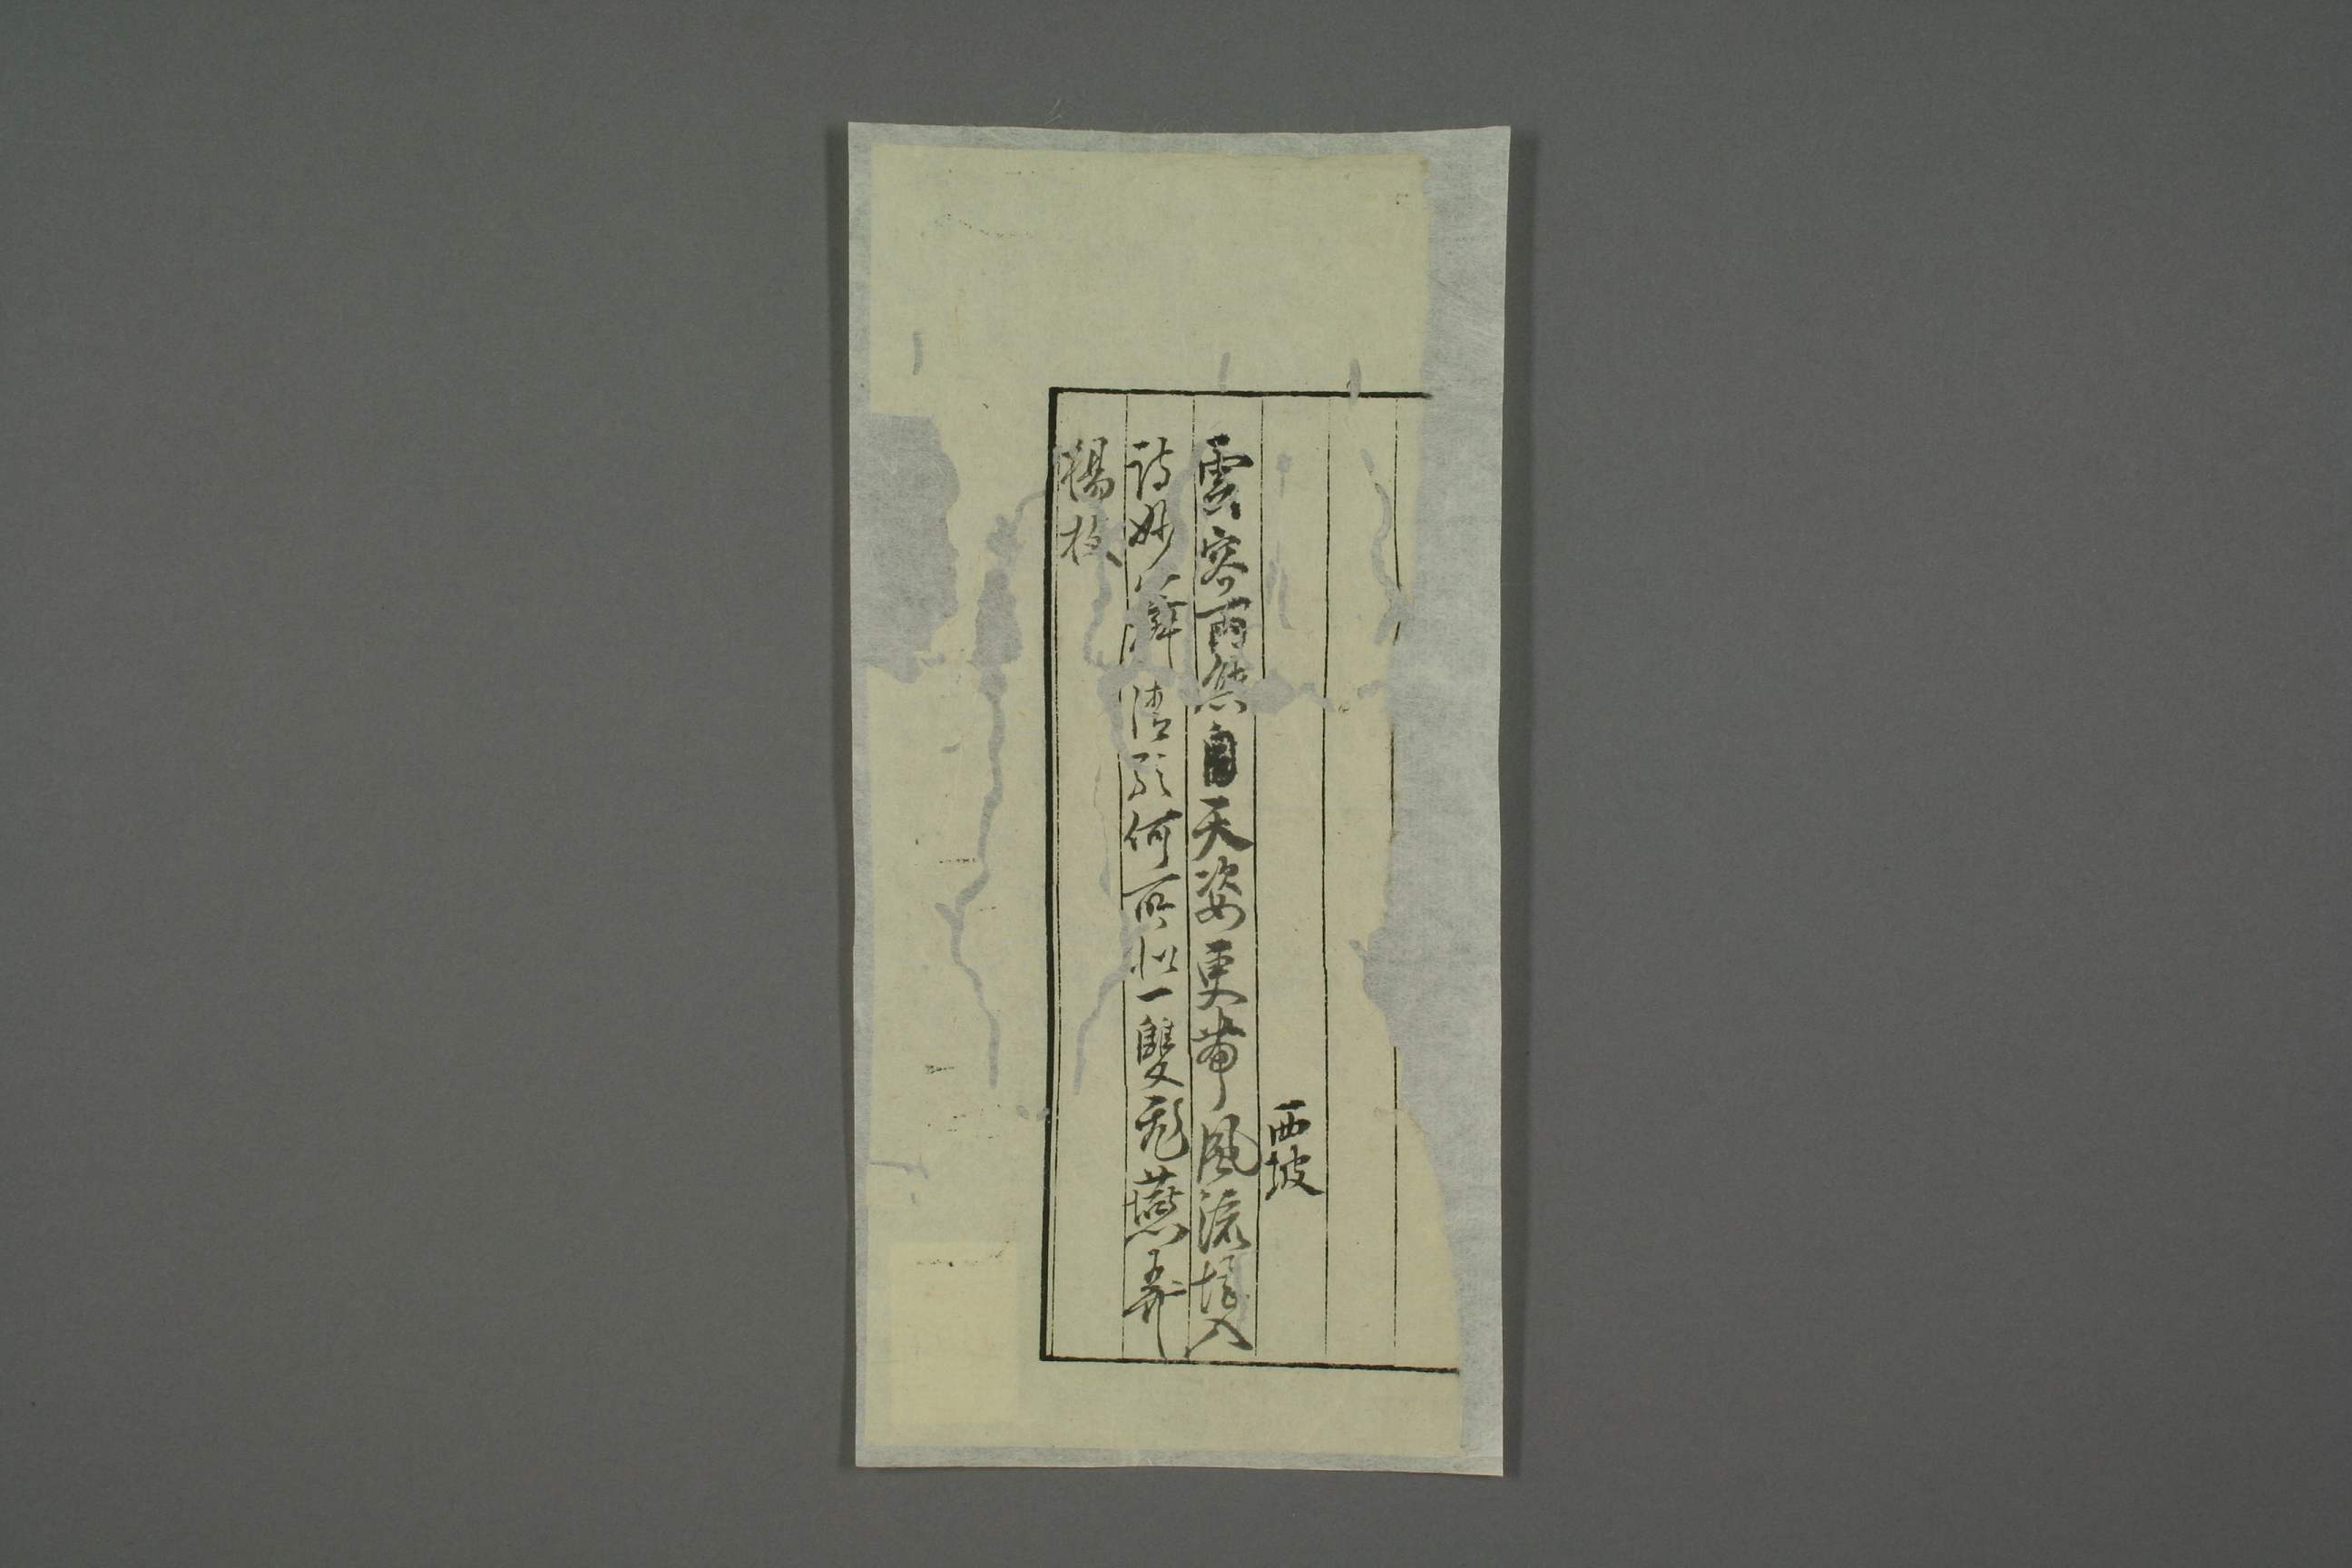 西坡
雲容雨態自天姿更帶風流堪入
詩妙舞情歌何所似一雙飛燕弄
楊枝